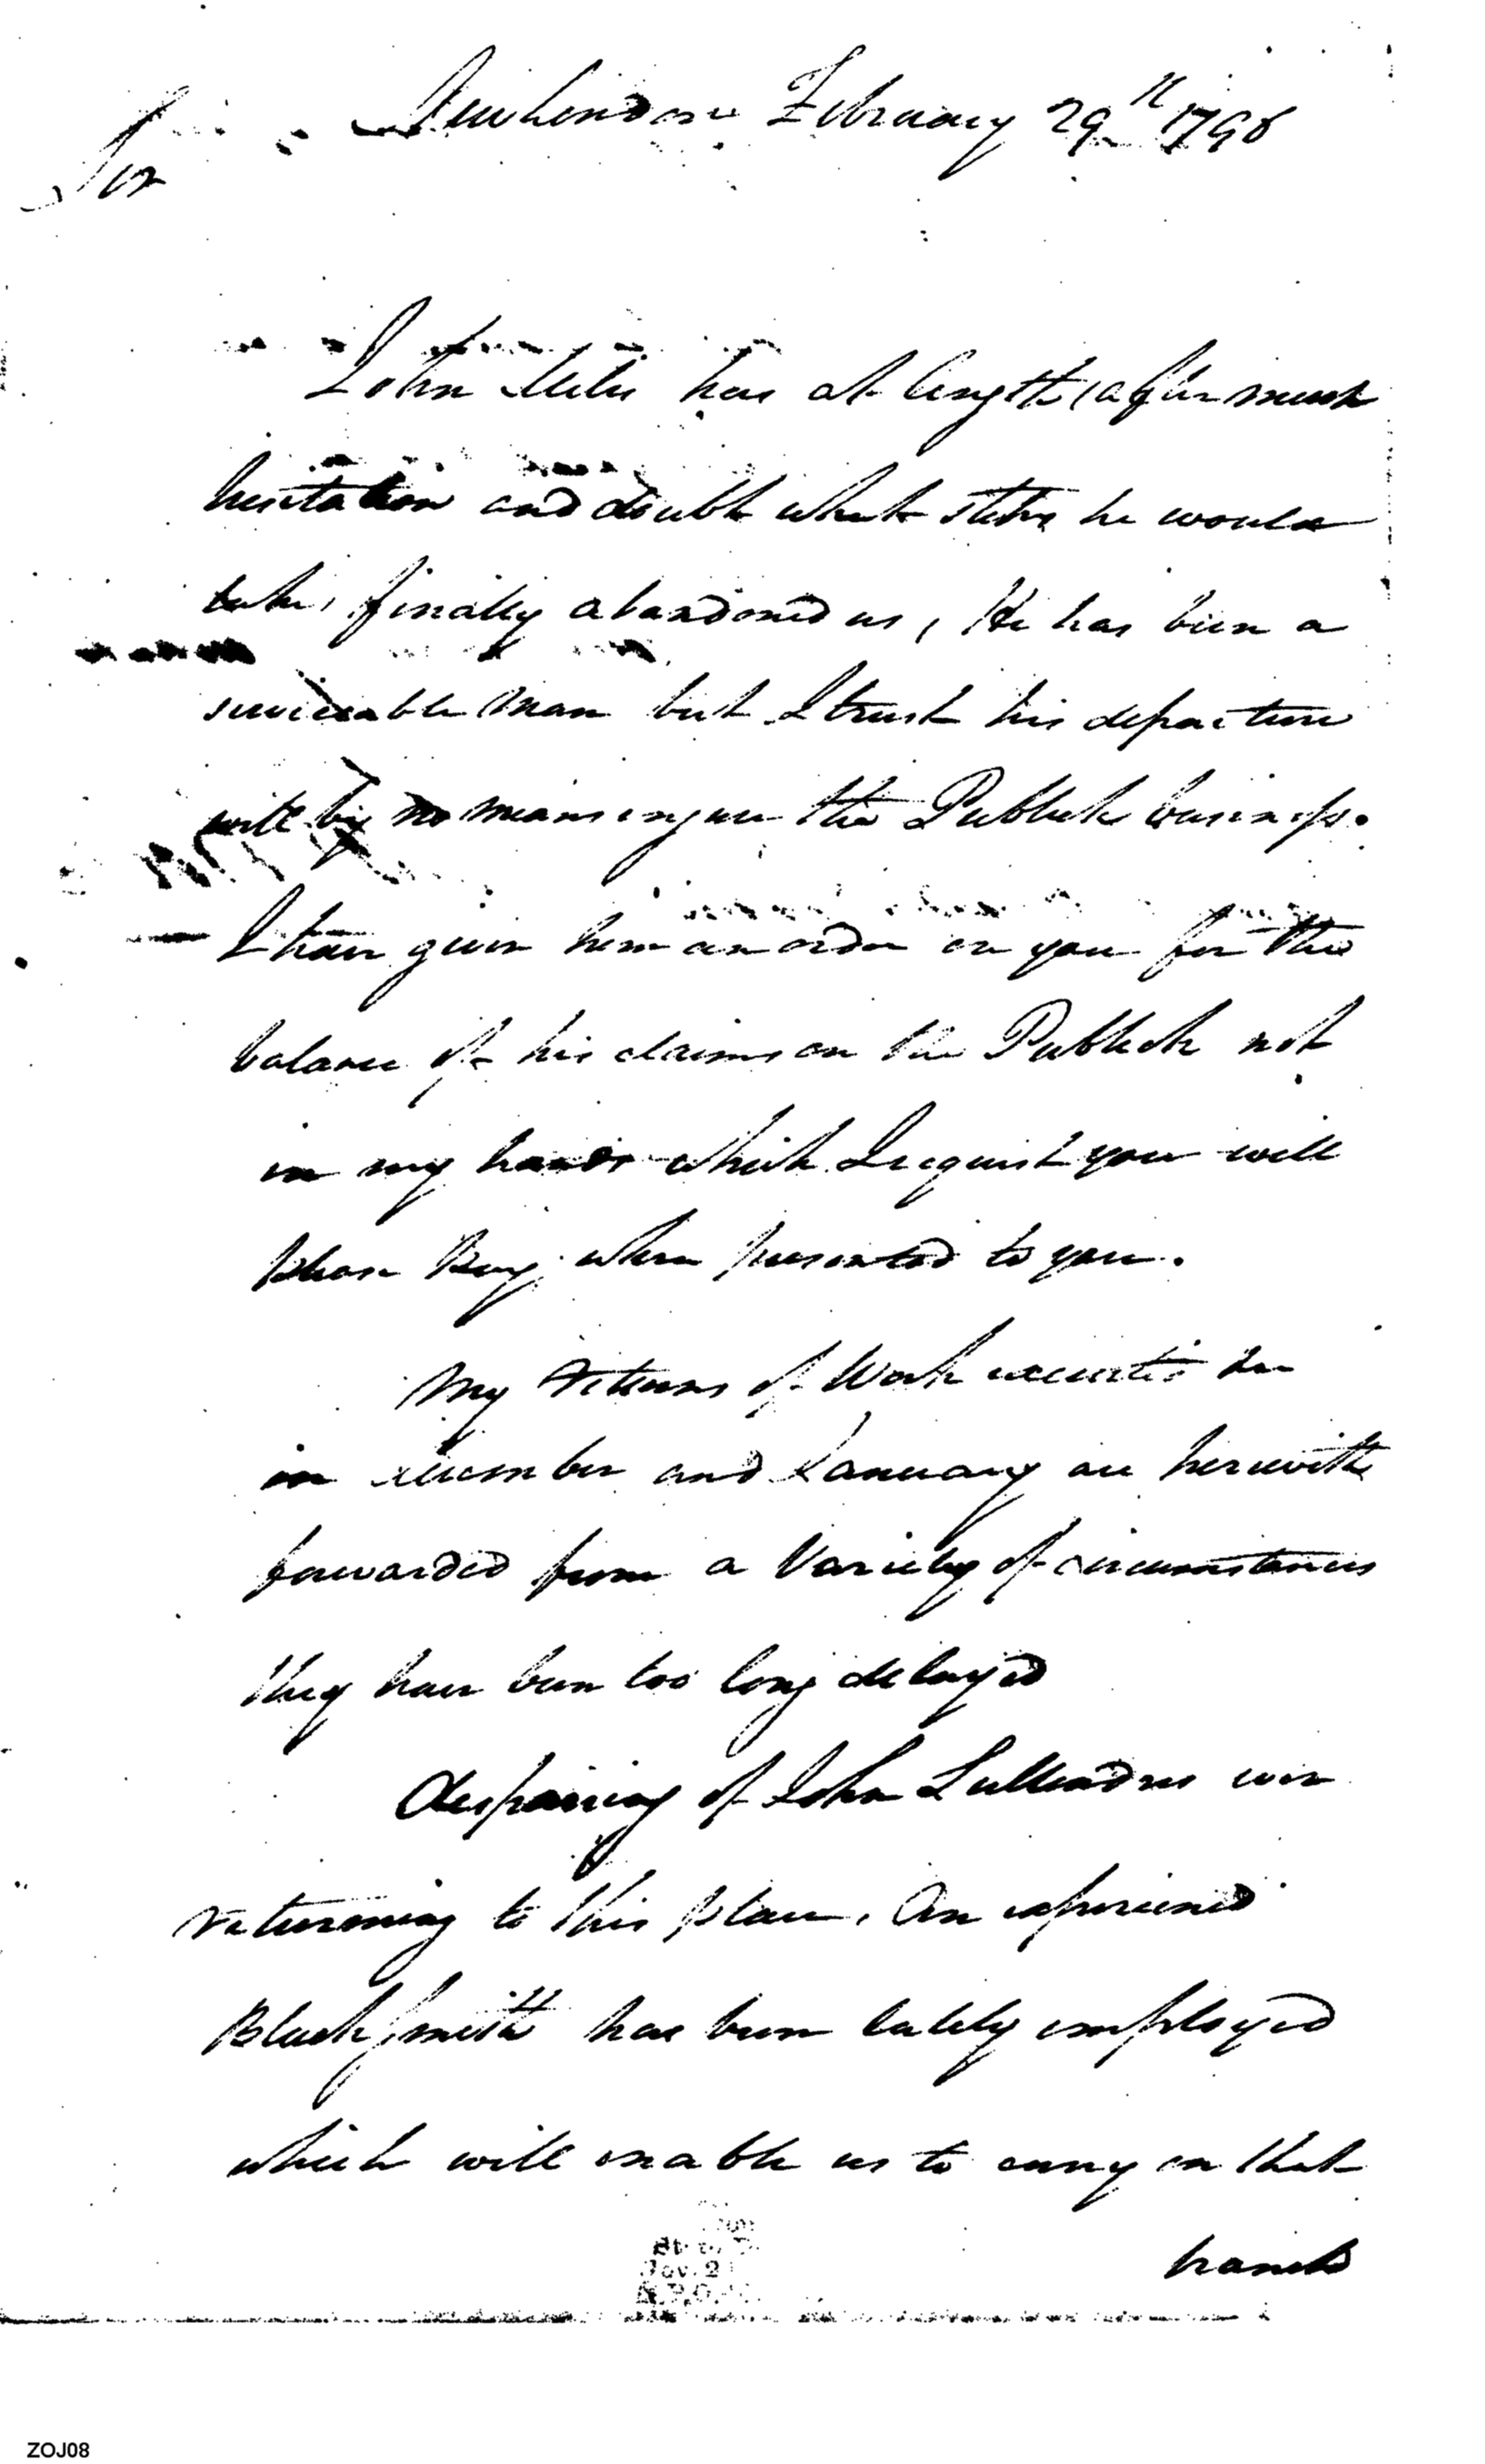 New London February 29th 1796
Sir
John Miles has at length (after much
hesitation and doubt what steps he would
take, finally abandoned us, He has been a
serviceable man but I trust his departure
will by no means injure the Publick business.
I have given him an order on you for the
balance of his claims on the Publick not
in my hands which I request you will
please Pay when presented to you.
My returns of Work executed here
in December and January are herewith
forwarded from a Variety of circumstances
they have been too long delayed
Despairing of John ever
returning to this place, An experienced
Black Smith has been lately employed
which will enable us to carry on that
branch
ZOJ08